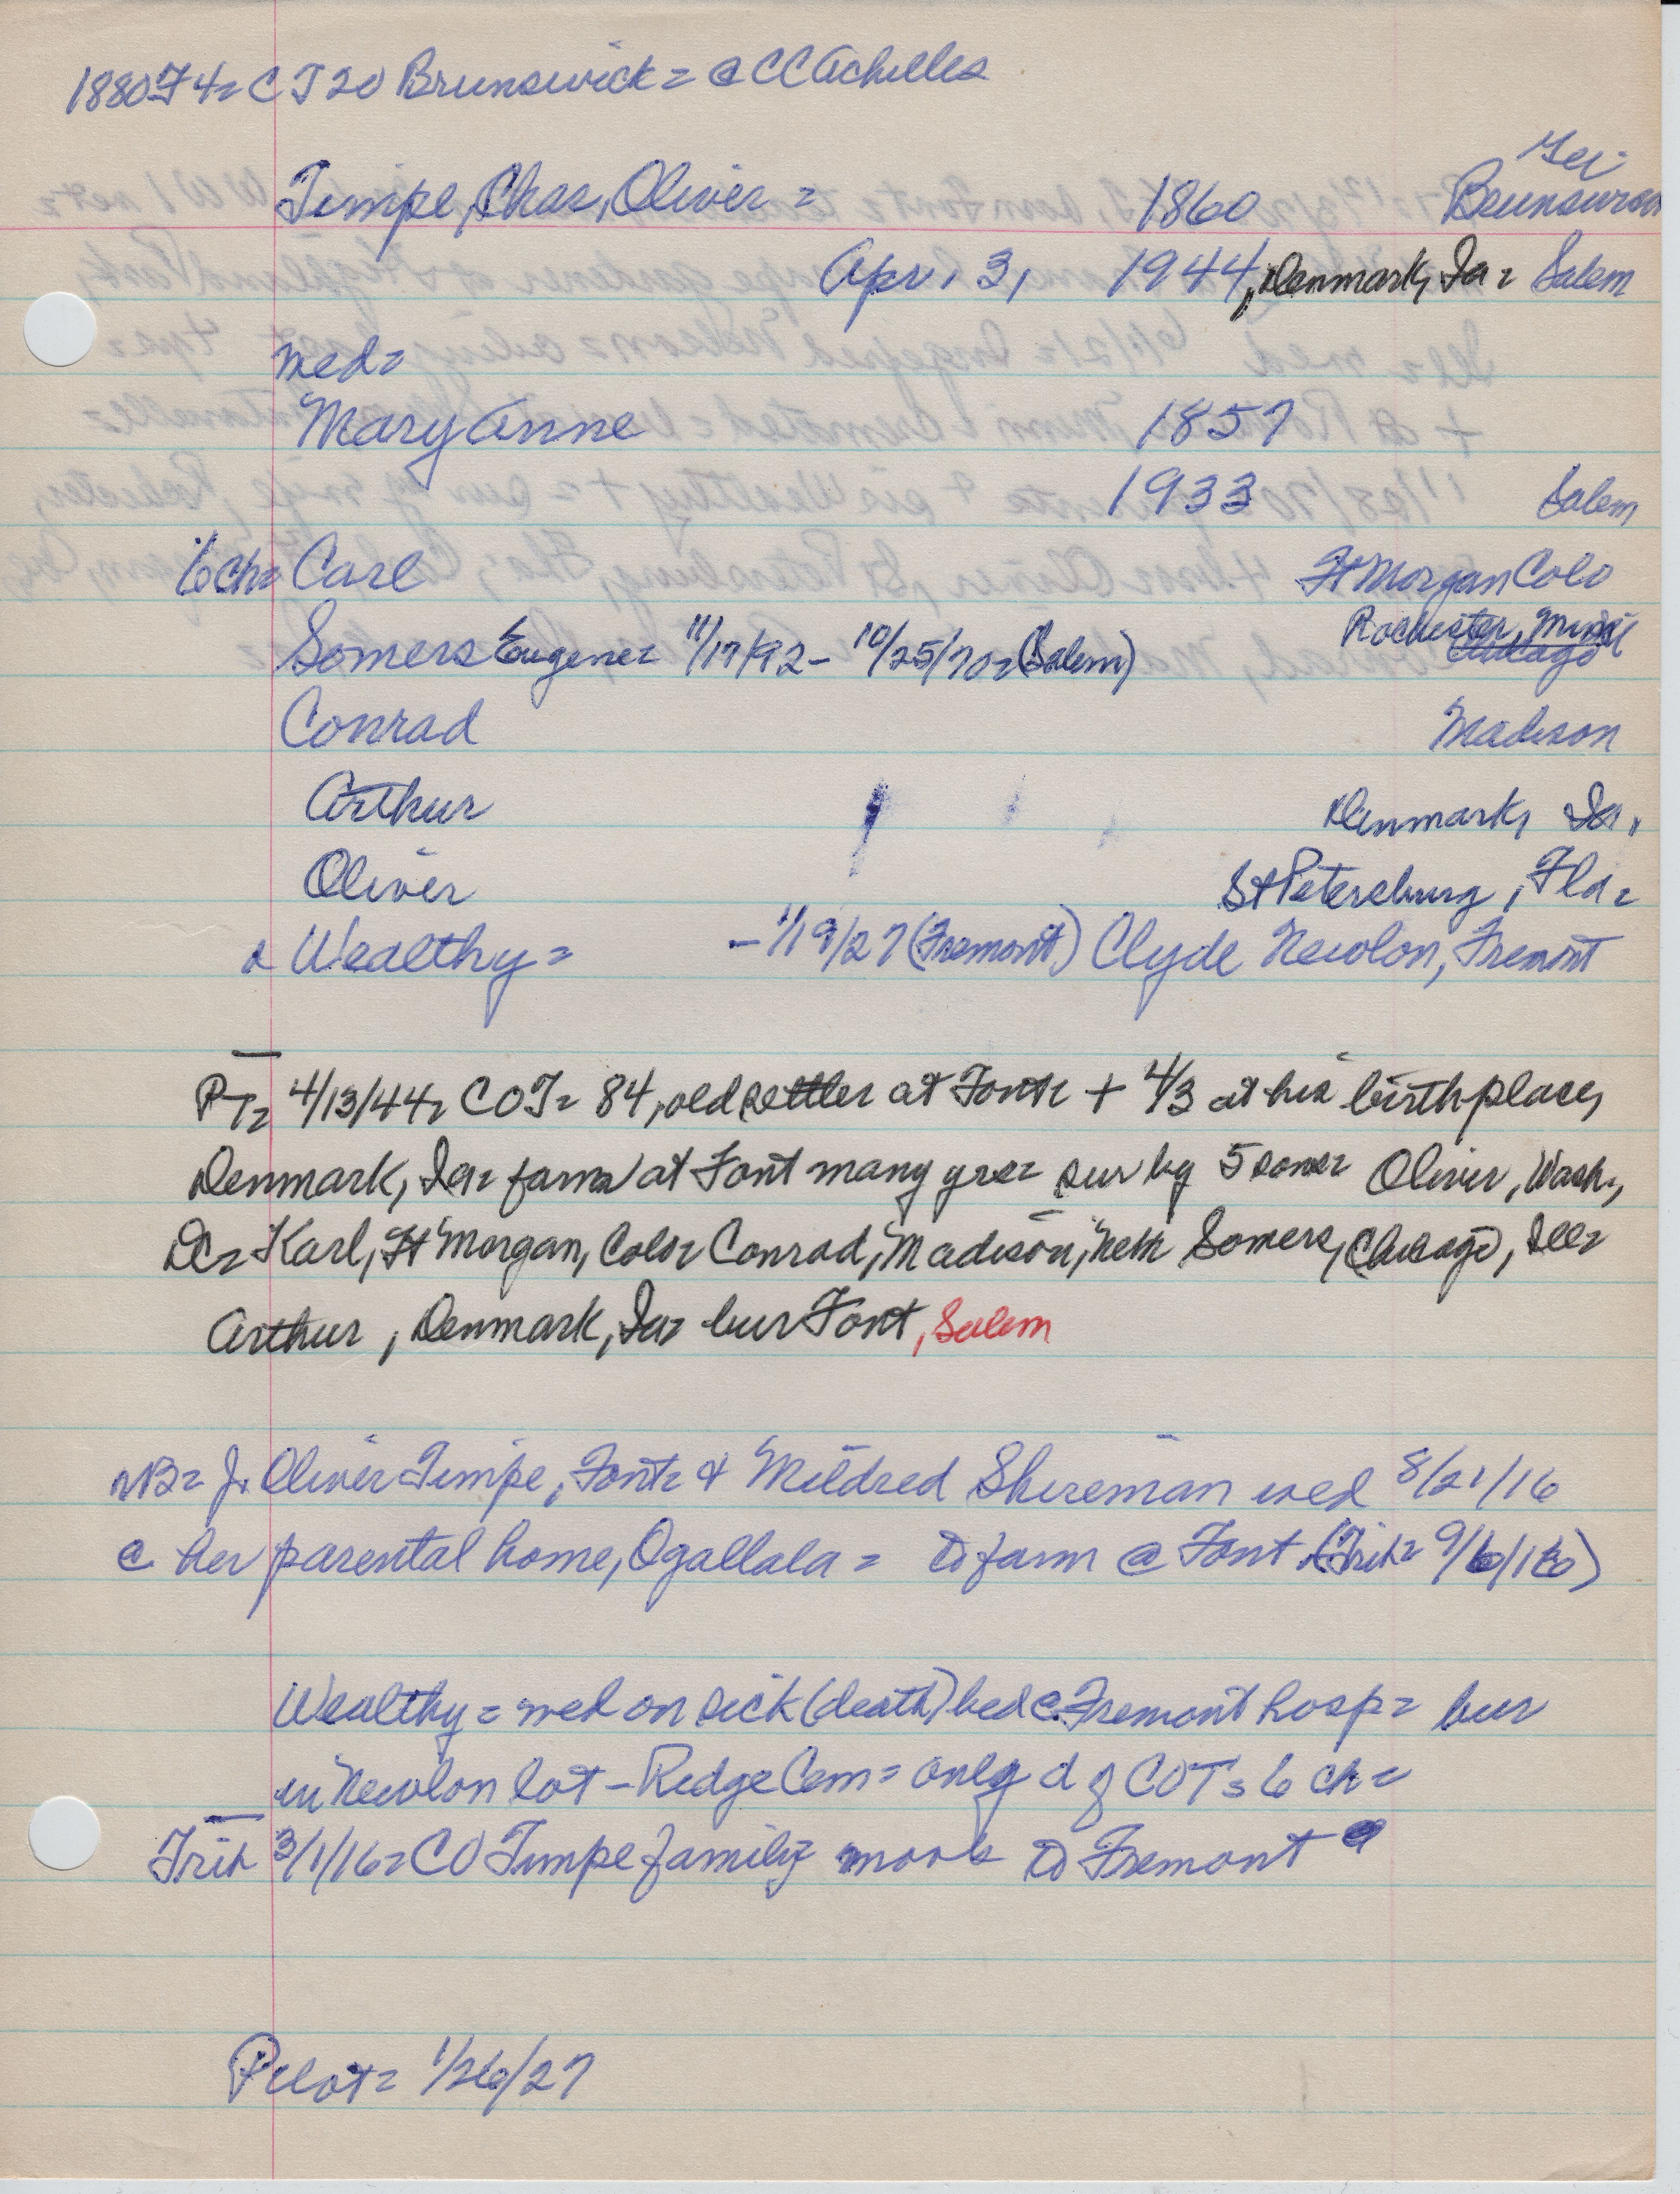 1880 F4= CT 20 Brunswick = @ CC Achilles
Ger
Timpe, Chas, Oliver = 1860 Brunswick
Apr. 3, 1944, Denmark, Ia = Salem
med=
Mary Anne 1857
1933 Salem
6 ch= Carl Ft Morgan Colo
Somers Eugene= 11/17/92 - 10/25/70= (Salem) Rochester, Minn
Chicago
Conrad Madison
Arthur Denmark, Ia,
Oliver St Petersburg, Fla=
& Wealthy = - 1/19/27 (Fremont) Clyde Newlon, Fremont
PT= 4/13/44= COT= 84, old settler at Font= + 4/3 at his birthplace,
Denmark, Ia= farm at Font many yrs= sur by 5 sons= Oliver, Wash.,
DC= Karl, Ft Morgan, Colo= Conrad, Madison, Neb= Somers, Chicago, Ill=
Arthur, Denmark, Ia= bur Font, Salem
NB= J. Oliver Timpe, Font= & Mildred Shireman wed 8/21/16
@ her parental home, Ogallala = to farm @ Font (Trib= 9/6/16)
Wealthy = wed on sick (death) bed @ Fremont hosp= bur
in Newlon lot - Ridge Cem = only d of COT's 6 ch=
Trib 3/1/16= CO Timpe family move to Fremont
Pilot= 1/26/27